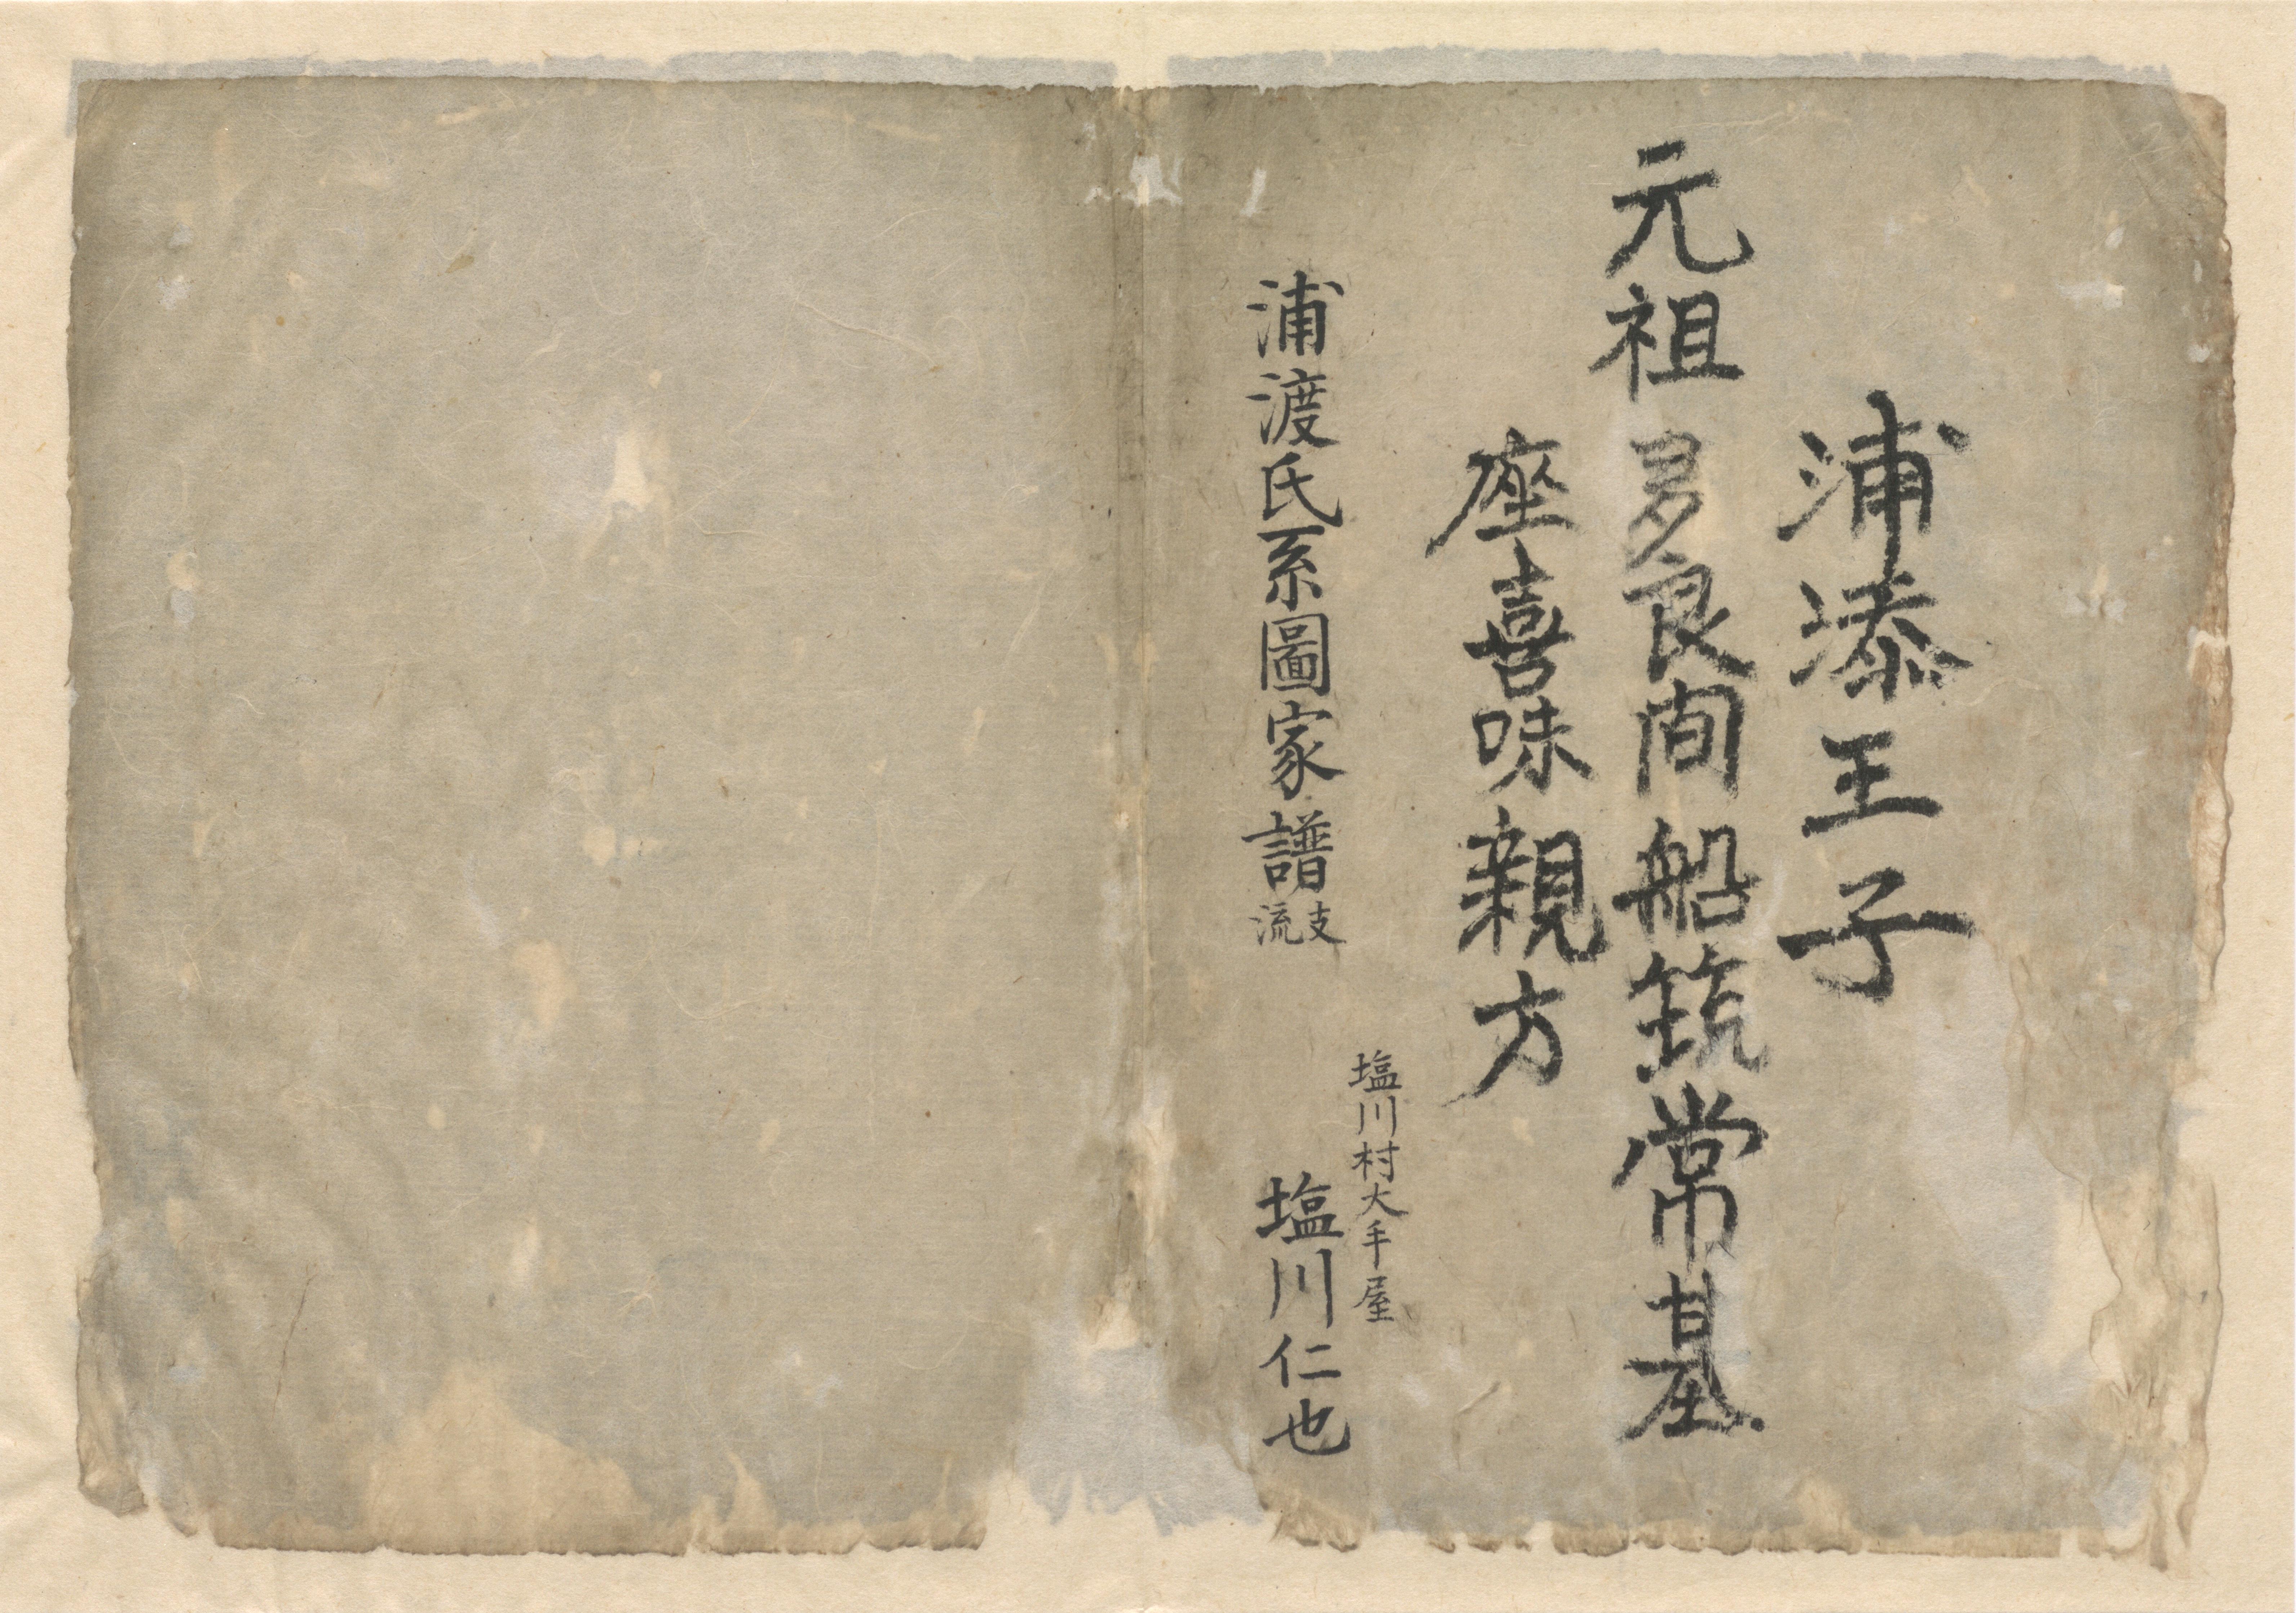 浦添王子
元祖多良間船筑常基
座喜味親方
塩川村大手屋
浦渡氏系圖家譜支流
塩川仁也